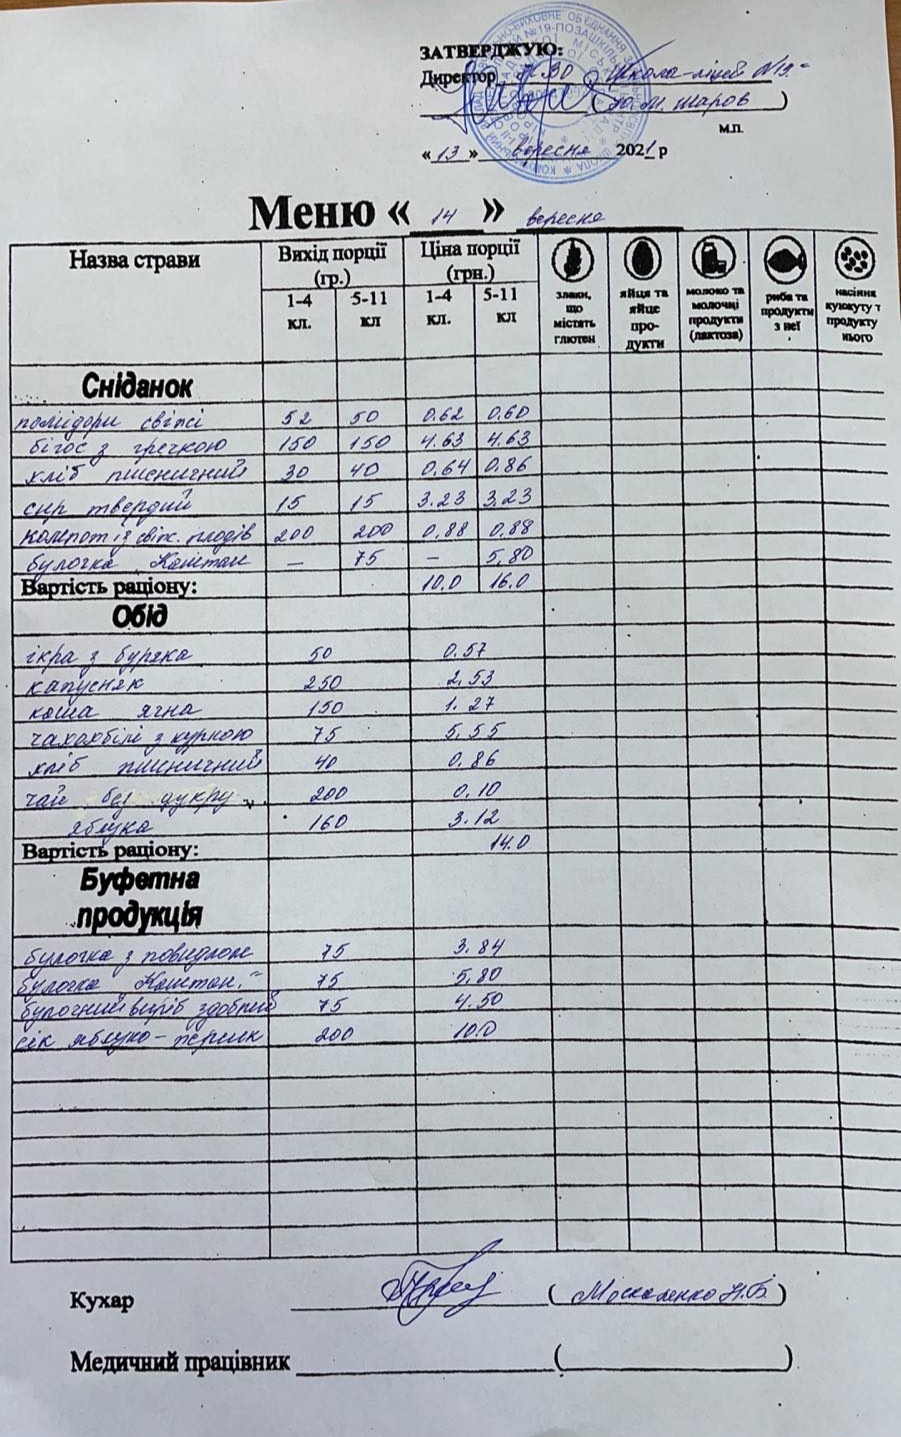 ЗАТВЕРДЖУЮ:
Директор НВО „Школа-ліцей №19"
(Ю.М. Шаров)
м.п.
« 13 » вересня 2021 р
Меню « 14 » вересня
Назва страви Вихід порції (гр.) Ціна порції (грн.) злаки, що містять глютен яйця та яйце про- дукти молоко та молочні продукти (лактоза) риба та продукти з неї насіння кунжуту т продукту нього
1-4 кл. 5-11 кл 1-4 кл. 5-11 кл
Сніданок
помідори свіжі 52 50 0.62 0.60
бігос з гречкою 150 150 4.63 4.63
хліб пшеничний 30 40 0,64 0.86
сир твердий 15 15 3.23 3,23
компот із свіж. плодів 200 200 0,88 0,88
булочка Каштан — 75 — 5,80
Вартість раціону: 10.0 16.0
Обід
ікра з буряка 50 0.57
капусняк 250 2,53
каша ячна 150 1.27
чахохбілі з куркою 75 5,55
хліб пшеничний 40 0,86
чай без цукру 200 0,10
яблука 160 3.12
Вартість раціону: 14.0
Буфетна
продукція
булочка з повидлом 75 3.84
булочка „Каштан" 75 5,80
булочний виріб здобний 75 4.50
сік яблуко-персик 200 10.0
Кухар (Москаленко Н.В.)
Медичний працівник ( )